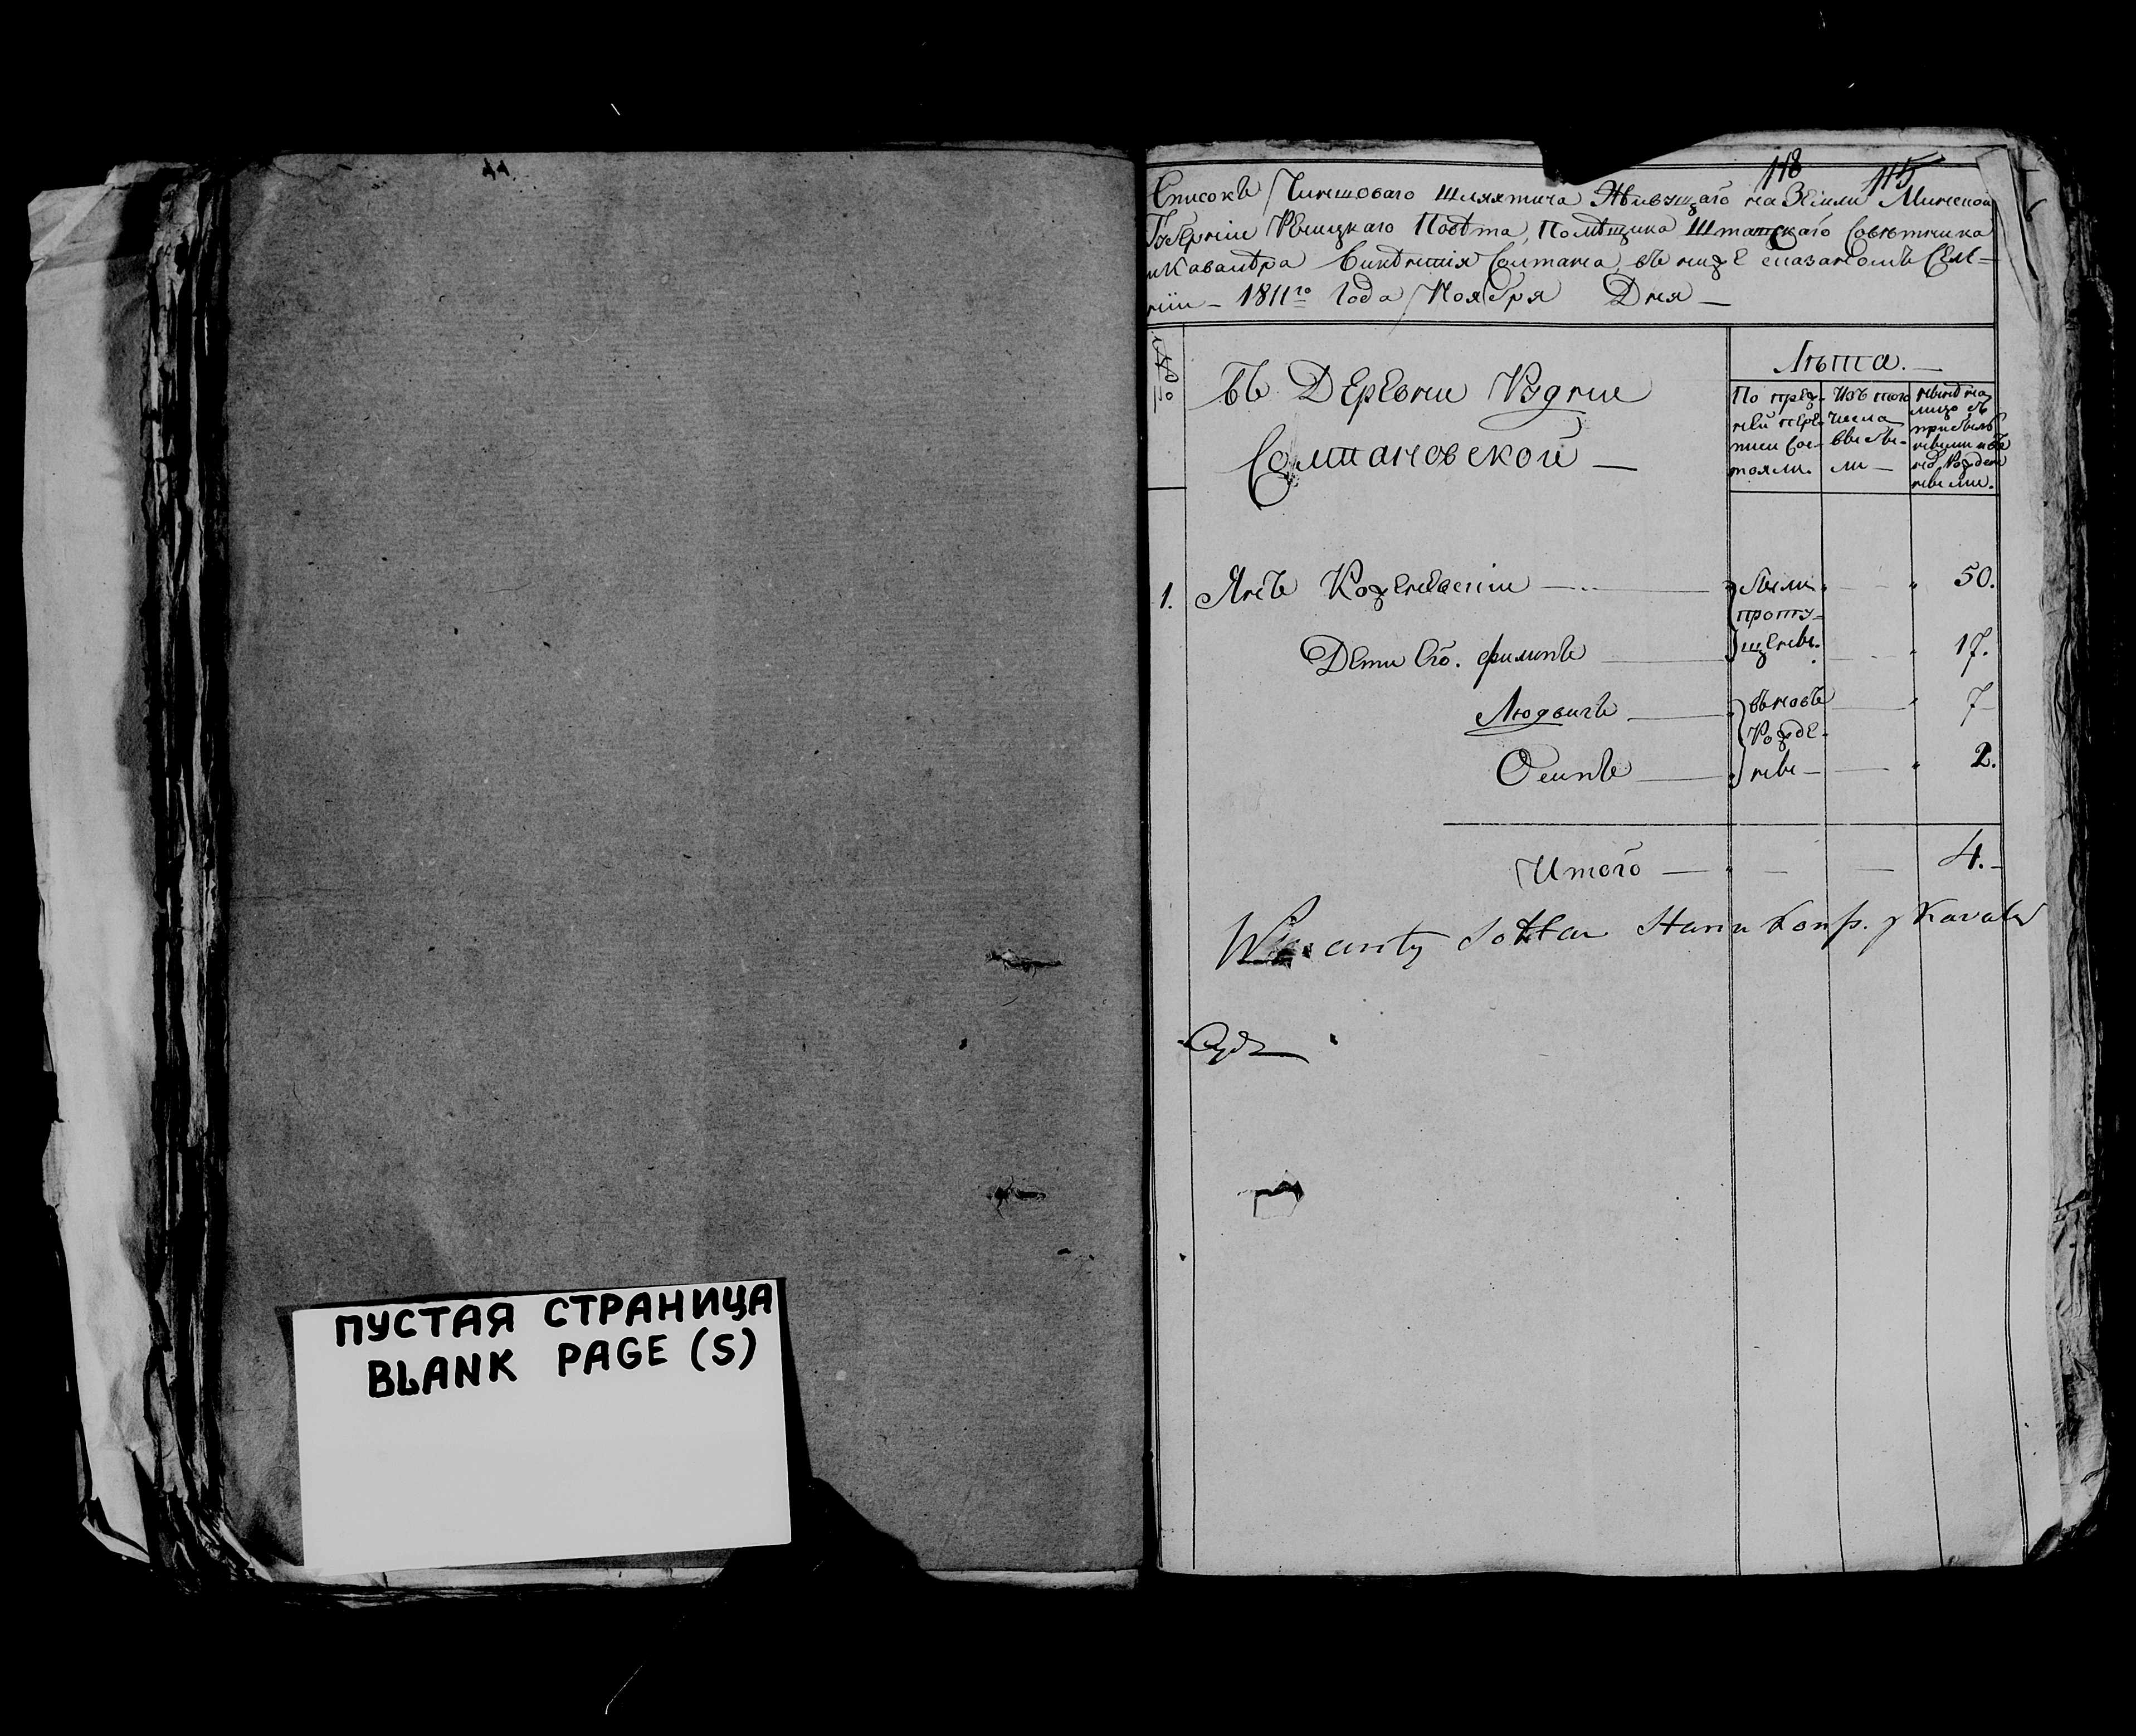 ПУСТАЯ СТРАНИЦА
BLANK PAGE (S)
118 115
Списокъ Чиншоваго Шляхтича Живущаго на Земли Минской
Губерніи Речицкаго Повѣта, Помѣщика Штатскаго Совѣтника
и Кавалера Викентія Солтана, въ ниже сказанномъ Селе-
ніи - 1811го Года Ноября Дня
№
въ Деревни Рудни
Солтановской
Лѣта.
По преж-
ней пере-
писи сос-
тояли.
Изъ того
числа
выбы-
ли
ныне на
лицо съ
прибыв-
рожден-
ными.
1. Янъ были 50.
пропу-
щены.
Дети Его. Филипъ 17.
Людвигъ вновь 7
Рожде-
Осипъ ны 2.
Итого 4.
Wincenty Sołtan Stanu Kons. y Kawaler